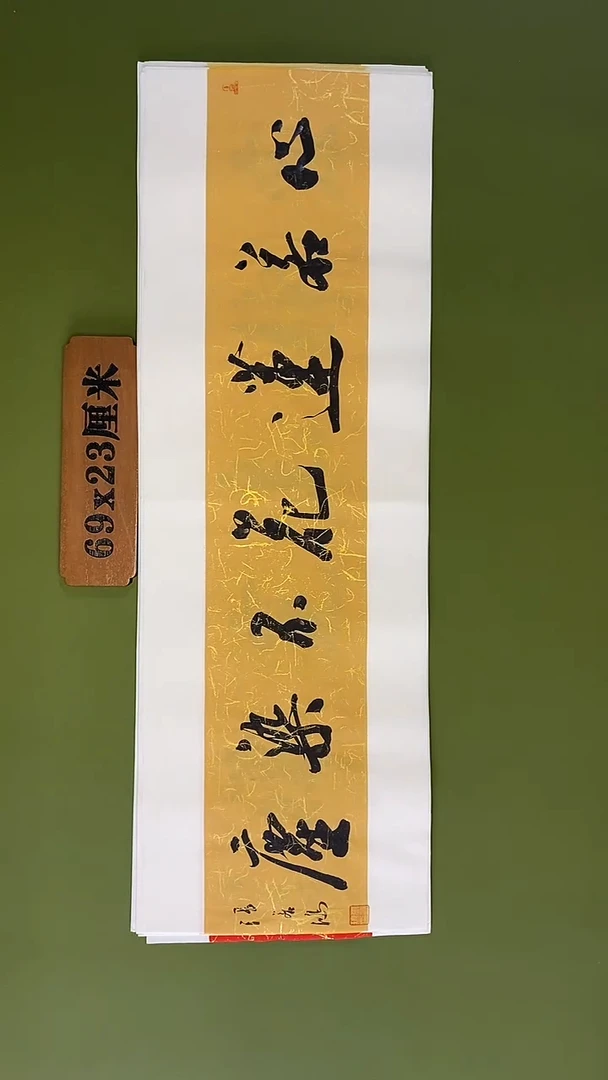 心若蓮花不染塵
69x23厘米